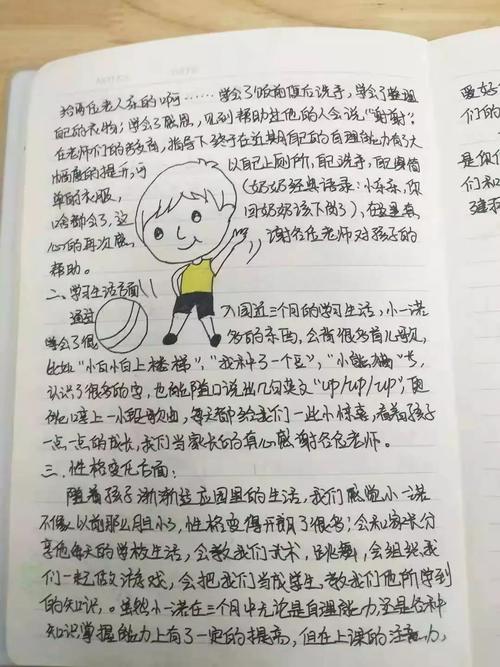 给两位老人乐的啊……学会了饭前便后洗手,学会了整理
自己的衣物;学会了感恩,见到帮助过他的人会说"谢谢"?
在老师们的指导下终于在近期自己的自理能力有了大
幅度的提升,可以自己上厕所,自己洗手,自己穿简
单的衣服,(奶奶经典语录:小乖乖,你
啥都会了,这回奶奶该下岗了),在这里衷
心的再次感谢各位老师对孩子的
帮助。
二、学习生活方面
通过入园近三个月的学习生活,小一诺
学会了很多的东西,会背很多首儿歌,
比如"小白小白上楼梯","我种了一个豆","小熊猫"等,
认识了很多的字,也能随口说出几句英文"up/up/up",更
能哼上一小段歌曲,每天都给我们一些小惊喜,看着孩子
一点一点的成长,我们当家长的真心感谢各位老师。
三、性格变化方面:
随着孩子渐渐适应园里的生活,我们感觉小一诺
不像以前那么胆小了,性格变得开朗了很多;会和家长分
享他每天的学校生活,会教我们武术,跳舞,会组织我
们一起做游戏,会把我们当成学生,教我们他所学到
的知识。虽然小一诺在三个月中无论是自理能力还是各种
知识掌握能力上有了一定的提高,但在上课的注意力,
爱好
们的
是你们
们和
建和